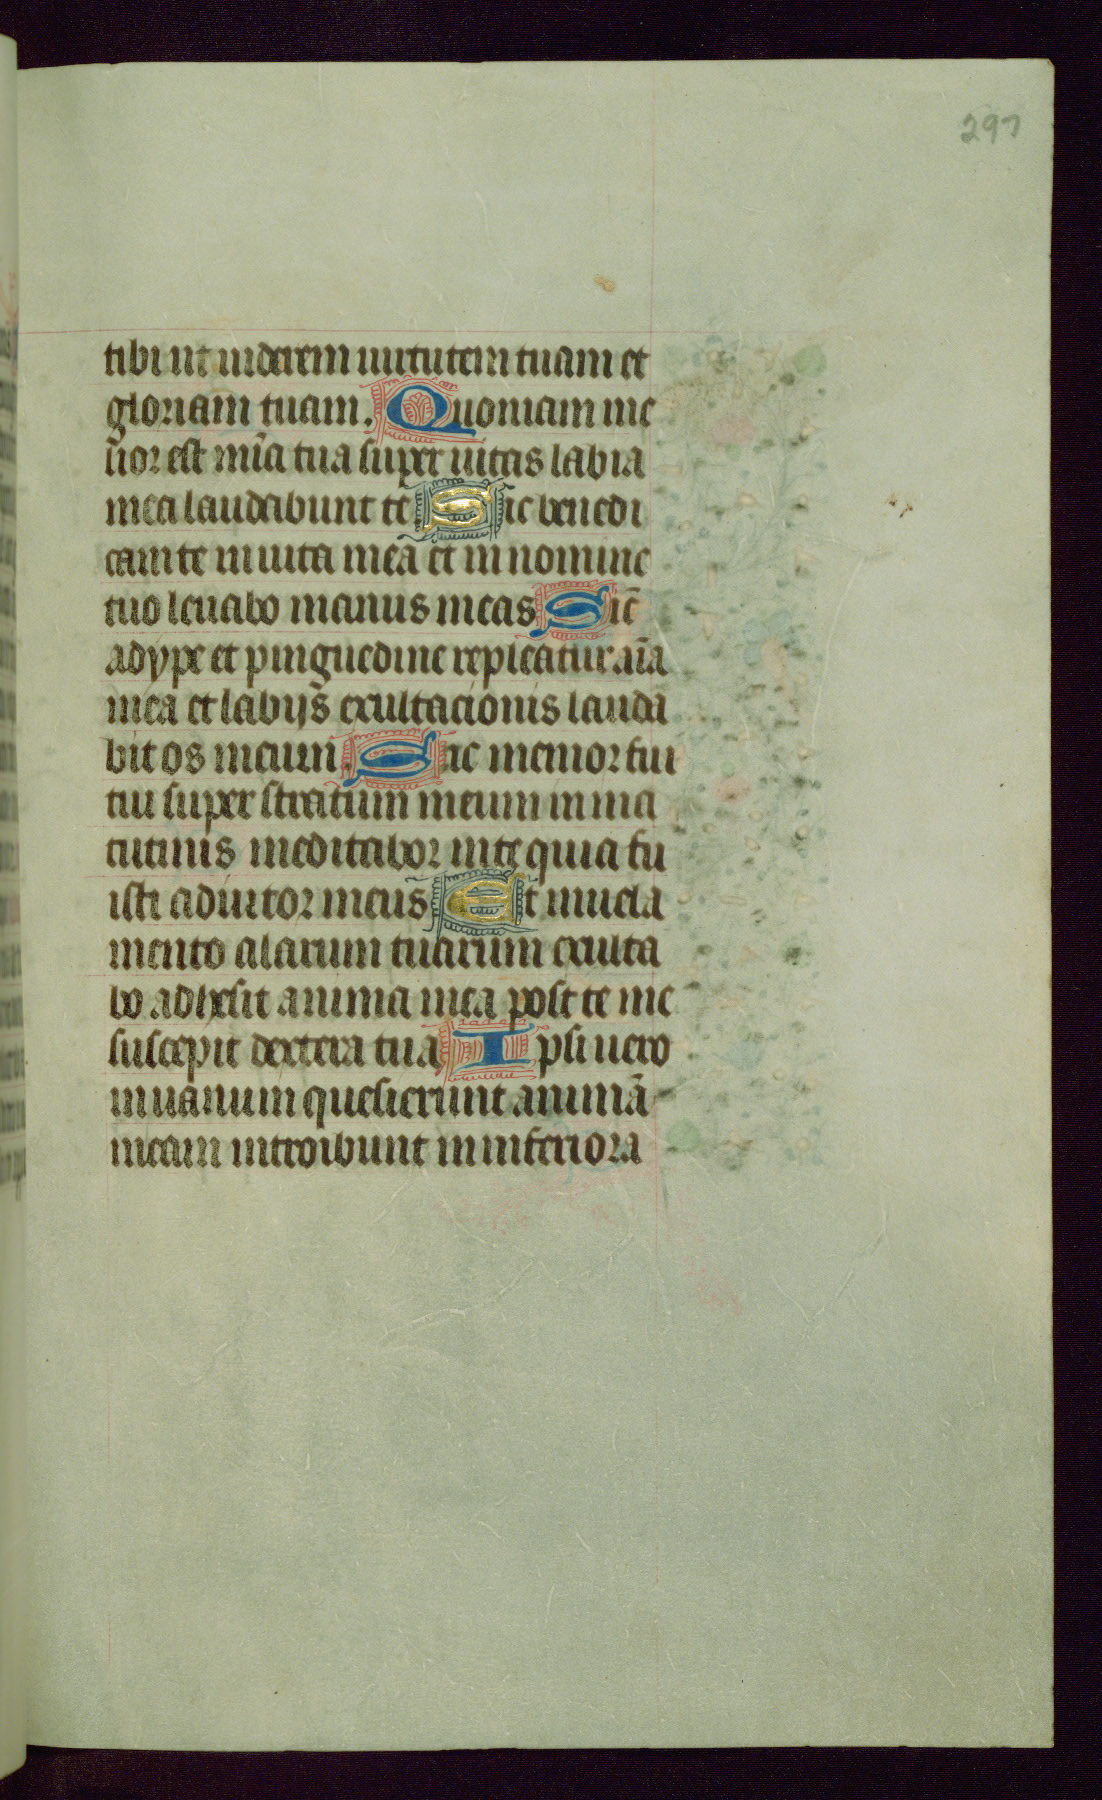 297
tibi ut uiderem uirtutem tuam et
gloriam tuam. Quoniam me
lior est mīa tua super uitas labia
mea laudabunt te Sic benedi
cam te in uita mea et in nomine
tuo leuabo manus meas Sic̄
adype et pinguedine repleatur aīa
mea et labijs exultacionis lauda
bit os meum. Sic memor fui
tui super stratum meum in ma
tutinis meditabor in te quia fu
isti adiutor meus Et in uela
mento alarum tuarum exulta
bo adhesit anima mea post te me
suscepit dextera tua Ipsi uero
in uanum quesierunt animā
meam introibunt in inferiora